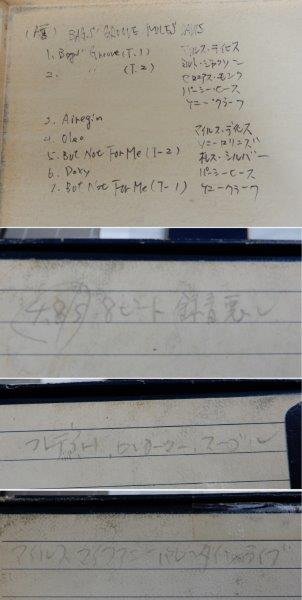 BAGS' GROOVE MILES DAVIS
1. Bags' Groove (T.1) マイルス・デイビス
2. 〃 〃 (T.2) ミルト・ジャクソン
セロニアス・モンク
パーシー・ヒース
ケニー・クラーク
3. Airegin マイルス・デイビス
4. Oleo ソニー・ロリンズ
5. But Not For Me (T-2) ホレス・シルバー
6. Doxy パーシーヒース
7. But Not For Me (T-1) ケニー・クラーク
8ビート 録音悪し
マイルス マイファニーバレンタインライブ